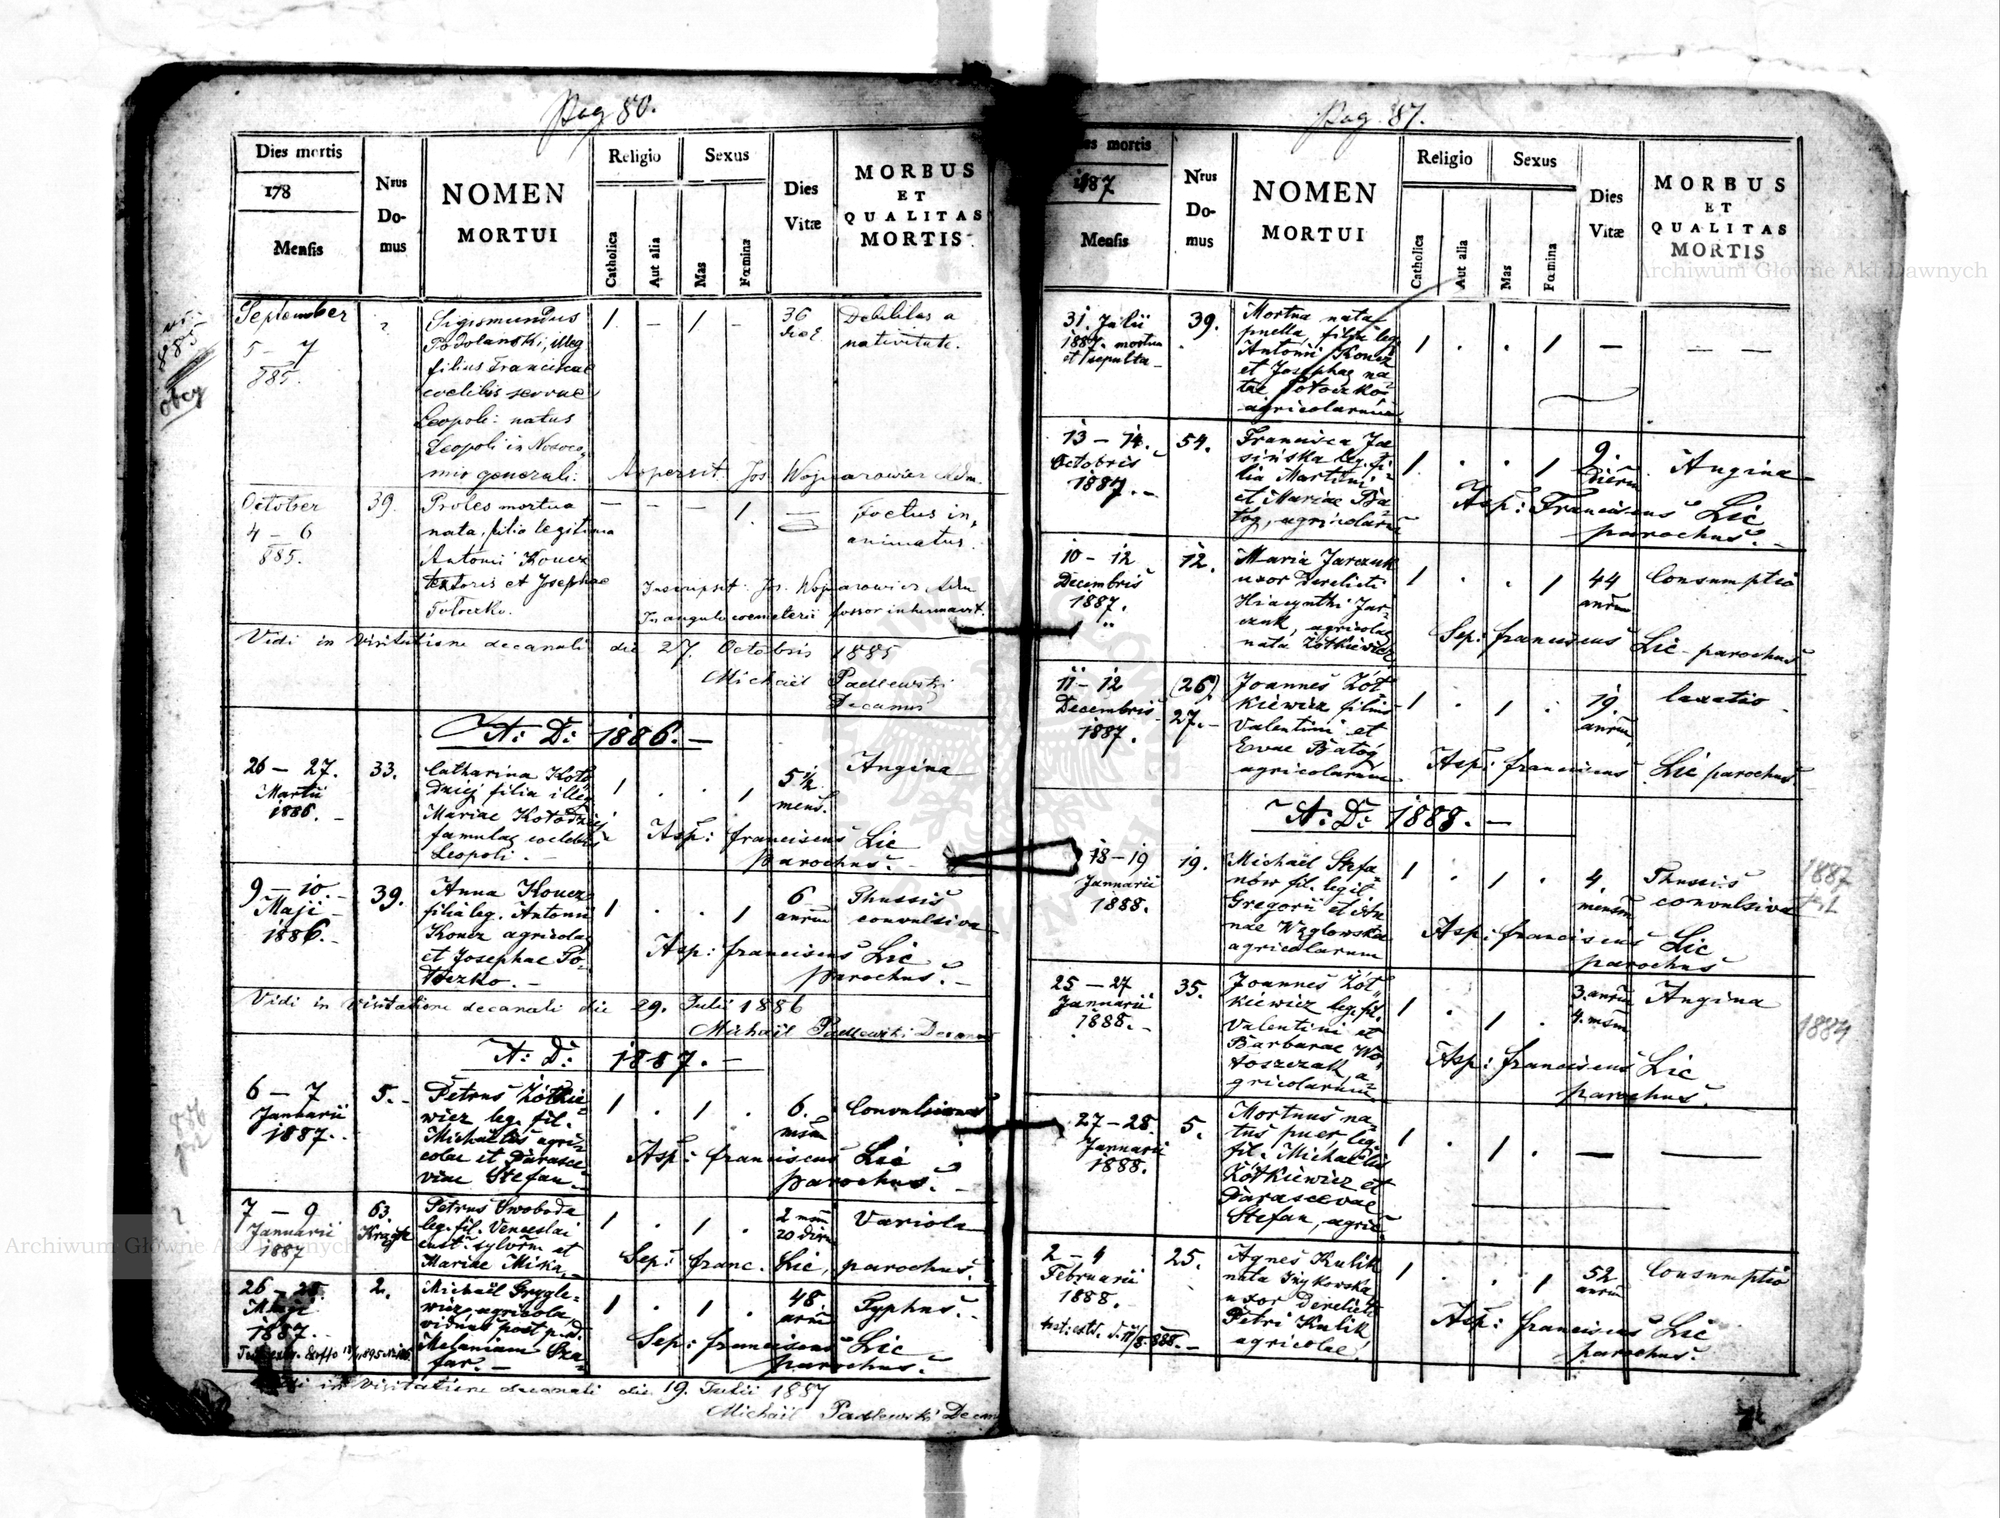 Pag 80.
Dies mortis
178
Mensis
Nrus
Do-
mus
NOMEN
MORTUI
Religio
Catholica
Aut alia
Sexus
Mas
Fœmina
Dies
Vitæ
MORBUS
ET
QUALITAS
MORTIS
September
5 – 7
885.
Sigismundus
Podolanski, illeg
filius Franciscae
coelibis servae
Leopoli: natus
Leopoli in Nosoco-
mio generali:
1. – 1. –
36
Debilitas a
nativitate.
Aspersit Jos Wojnarowicz Adm.
October
4 – 6
885.
39.
Proles mortua
nata, filia legitima
Antonii Koncz
textoris et Josephae
Potoczko.
– – – 1. –
Foetus in,
animatus.
Inscripsit Jos. Wojnarowicz Adm
In angulo coemeterii fossor inhumavit.
Vidi in visitatione decanali die 27. Octobris 1885
Michael Padlewski
Decanus
A: D: 1886. –
26 – 27.
Martii
1886. –
33.
Catharina Koło
dziej filia illeg
Mariae Kołodziej
famulae coelebis
Leopoli. –
1 . . 1
5 ½
mens.
Angina
Asp: franciscus Lic
parochus. –
9 – 10. –
Maji
1886. –
39.
Anna Koncz
filia leg. Antonii
Koncz agricolae
et Josephae Po-
toczko. –
1 . . 1
6
annrum
Thussis
convulsiva
Asp: franciscus Lic
parochus. –
Vidi in visitatione decanali die 29. Julii 1886
Michael Padlewski Decanus
A: D: 1887. –
6 – 7
Januarii
1887. –
5. –
Petrus Żółkie-
wicz leg. fil.
Michaelis agri-
colae et Parasce-
viae Stefan. –
1 . 1 .
6.
msm
Convulsiones
Asp: franciscus Lic
parochus. –
7 – 9
Januarii
1887
63.
Petrus Swoboda
leg. fil. Venceslai
cust. sylvrm et
Mariae Miska. –
1 . 1 .
2 msm
20 dirm
Variola
Sep: franc. Lic, parochus.
26 – 28.
Maji
1887. –
2.
Michael Grygle-
wicz, agricola,
viduus post p. d.
Melaniam Sza-
far. –
1 . 1 .
48
anrm
Typhus. –
Sep: franciscus Lic
parochus. –
Vidi in visitatione decanali die 19. Julii 1887
Michael Padlewski Decanus
Pag. 87.
Dies mortis
187
Mensis
Nrus
Do-
mus
NOMEN
MORTUI
Religio
Catholica
Aut alia
Sexus
Mas
Fœmina
Dies
Vitæ
MORBUS
ET
QUALITAS
MORTIS
31. Julii
1887. mortua
et sepulta –
39.
Mortua nata
puella, filia leg.
Antonii Koncz
et Josephae na-
tae Potoczko
agricolarum
1 . . 1 – – – –
13 – 14.
Octobris
1887. –
54.
Francisca Ja-
sińska leg. fi-
lia Martini
et Mariae Ba-
tog, agricolarum
1. . . 1
9.
dierm
Angina
Asp: Franciscus Lic
parochus. –
10 – 12
Decembris
1887.
12.
Maria Jarczuk
uxor derelicti
Hiacynthi Jar-
czuk, agricolae
nata Żółkiewicz
1 . . 1
44
anrm
Consumptio
Sep: franciscus Lic – parochus
11 – 12
Decembris
1887.
(26)
27. –
Joannes Żół-
kiewicz filius
Valentini et
Evae Batog
agricolarum
1 . 1 .
19.
anrm,
laxatio
Asp: franciscus Lic parochus.
A: D: 1888. –
18 – 19
Januarii
1888.
19.
Michael Stefa-
nów fil. legit
Gregorii et An-
nae Węglowska
agricolarum
1 . 1 .
4.
mensm
Thussis
convulsiva
Asp: franciscus Lic
parochus
1887
25 – 27
Januarii
1888. –
35.
Joannes Żół-
kiewicz leg. fil.
Valentini et
Barbarae Wo-
łoszczak a-
gricolarum
1 . 1 .
3. anrm
4. msm.
Angina
1884
Asp: franciscus Lic
parochus.
27 – 28.
Januarii
1888.
5.
Mortuus na-
tus puer leg.
fil. Michaelis
Żółkiewicz et
Parascevae
Stefan, agric.
1 . 1 . – –
2 – 4
Februarii
1888.
25.
Agnes Kulik
nata
uxor derelicta
Petri Kulik
agricolae.
1 . . 1
52
anrm
Consumptio
Asp: franciscus Lic
parochus.
Archiwum Główne Akt Dawnych
Archiwum Główne Akt Dawnych